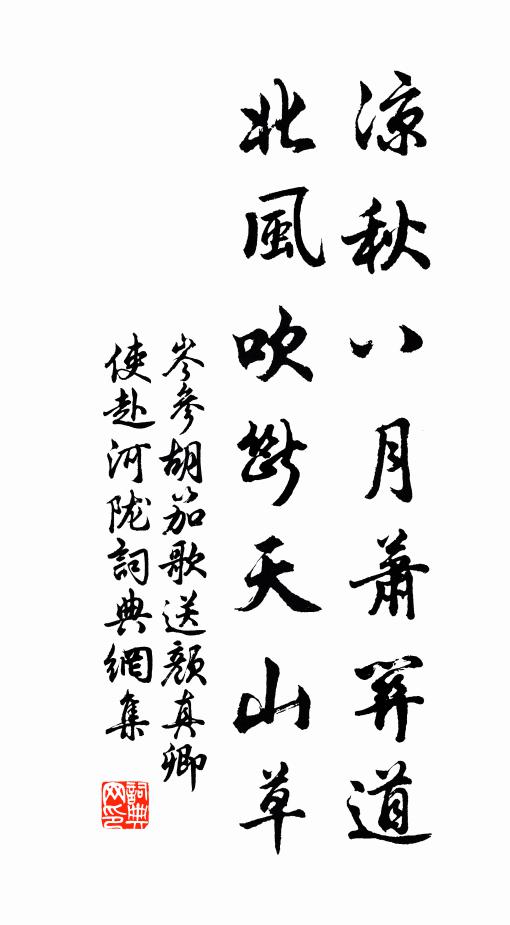 凉秋八月蕭關道
北風吹斷天山草
岑參胡笳歌送顏真卿
使赴河陇詞典網集
詞典网印